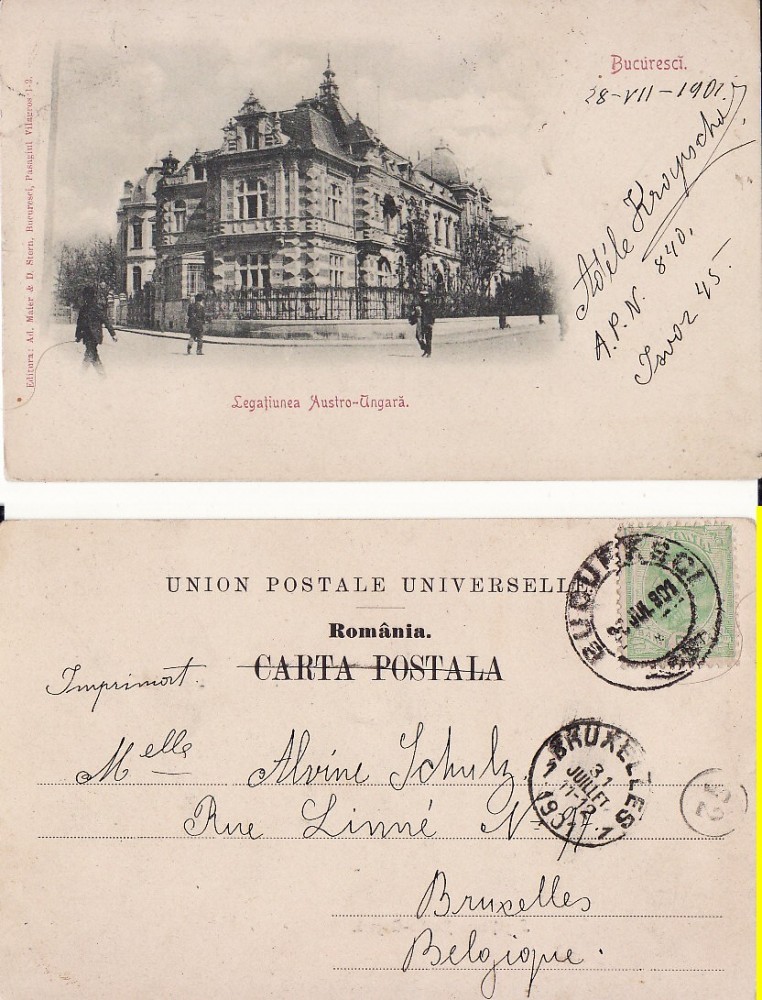 Bucurescĭ.
28-VII-1901
Adèle
A.P.N. 840.
Isvor 45.
Editura: Ad. Maier & D. Stern, Bucuresci, Pasagiul Vilagros 1-3.
Legațiunea Austro-Ungară.
UNION POSTALE UNIVERSELLE
România.
CARTA POSTALA
BUCURESCI
JUL 901
Imprimat.
Melle Alvine Schulz
BRUXELLES
31
JUILLET
11-12
1901
Rue Linné No
Bruxelles
Belgique.